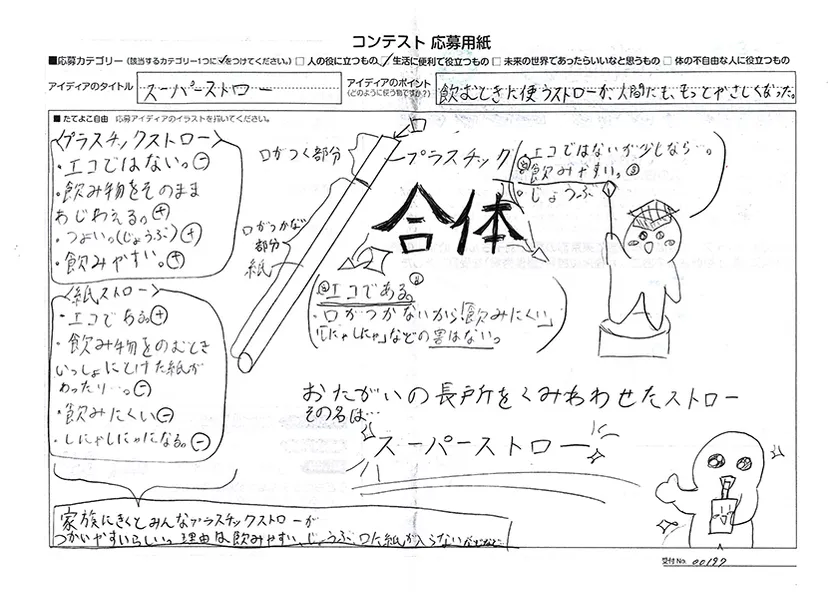 コンテスト 応募用紙
■応募カテゴリー（該当するカテゴリー1つに✓をつけてください。）□ 人の役に立つもの ☑ 生活に便利で役立つもの □ 未来の世界であったらいいなと思うもの □ 体の不自由な人に役立つもの
アイディアのタイトル
スーパーストロー
アイディアのポイント
（どのように使う物ですか？）
飲むときに使うストローが、人間にも、もっとやさしくなった。
■ たてよこ自由 応募アイディアのイラストを描いてください。
〈プラスチックストロー〉
・エコではない。⊖
・飲み物をそのまま
あじわえる。⊕
・つよい。(じょうぶ)⊕
・飲みやすい。⊕
〈紙ストロー〉
・エコである。⊕
・飲み物をのむとき
いっしょにとけた紙が
わったり…。⊖
・飲みにくい⊖
・しにゃしにゃになる。⊖
口
口がつく部分
プラスチック
エコではないが少しなら…。
飲みやすい。
・じょうぶ
合体
口がつかない
部分
紙
エコである。
・口がつかないから「飲みにくい」
「しにゃしにゃ」などの害はない。
おたがいの長所をくみわわせたストロー
その名は…
スーパーストロー
家族にきくとみんなプラスチックストローが
つかいやすいらしい。理由は飲みやすい、じょうぶ、口に紙が入らないなどなど
受付No. 00197